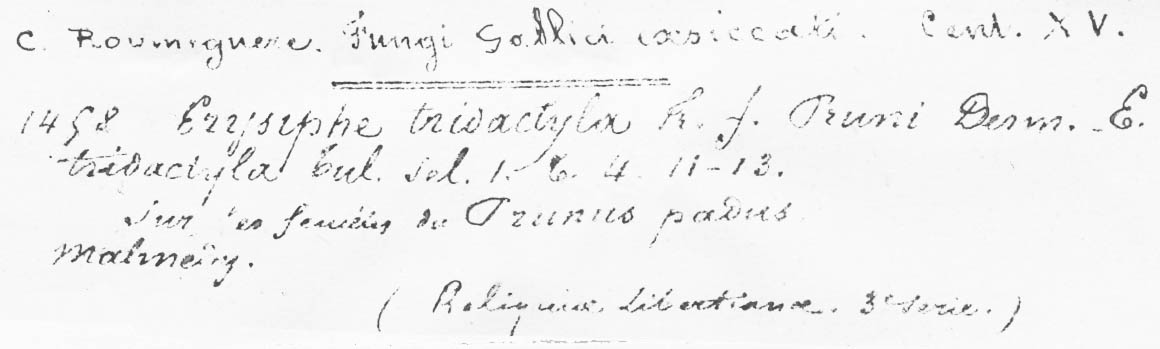 C. Roumeguere. Fungi Gallici exsiccati. Cent. XV.
1458 Erysiphe tridactyla R. f. Pruni Desm. E.
tridactyla Tul. Sel. 1. t. 4. 11-13.
Sur les feuilles du Prunus padus
Malmedy.
(Reliquiæ Libertianæ. 3e serie.)